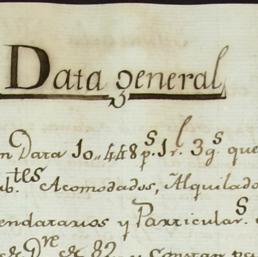 Data general
n Data 10..448 p.s 1 r.l 3 g.s que
ub.tes Acomodados, Alquilado
endatarios y Particular.s
D.re de 82 y Constan